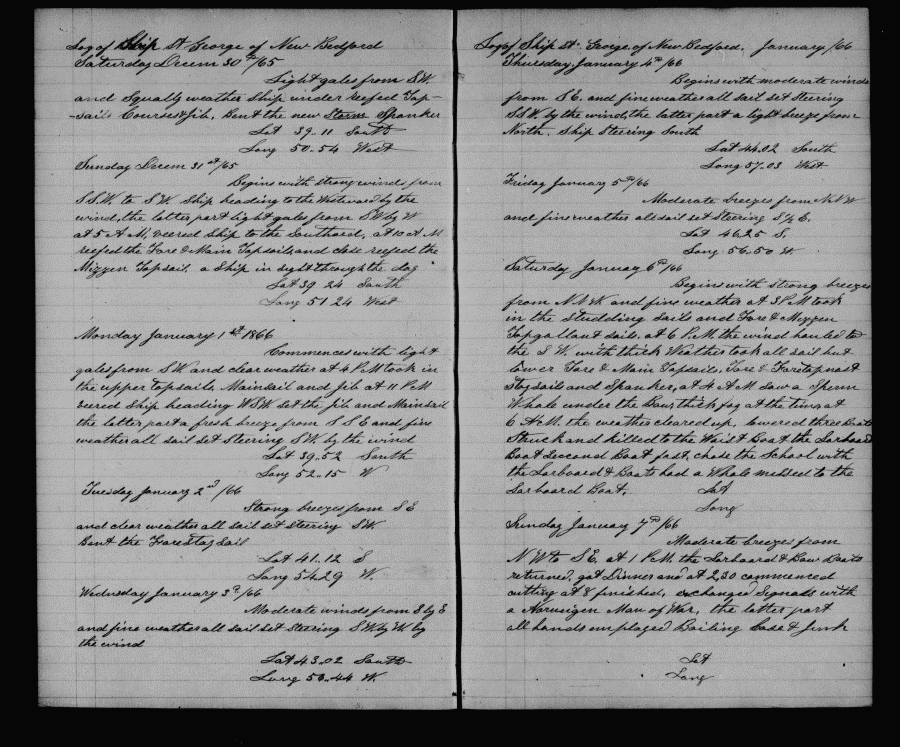 Log of Ship St George of New Bedford
Saturday Decem 30th/65
Light gales from SW
and Squally weather Ship under reefed Top-
-sails Courses & jib, Bent the new Storm Spanker
Lat 39.11 South
Long 50.54 West
Sunday Decem 31st/65
Begins with strong winds from
S.S.W. to SW Ship heading to the Westward by the
wind, the latter part light gales from SW by W
at 5 A M, veered Ship to the Southard, at 10 A.M
reefed the Fore & Main Topsails, and close reefed the
Mizzen Topsail. a Ship in sight through the day
Lat 39 24 South
Long 51 24 West
Monday January 1st 1866
Commences with light
gales from SW and clear weather at 4 P.M took in
the upper topsails, Mainsail and jib at 11 P.M
veered Ship heading WSW set the jib and Mainsail
the latter part a fresh breeze from S S E and fine
weather all sail set Steering SW by the wind
Lat 39..52 South
Long 52..15 W
Tuesday January 2nd/66
Strong breezes from S E
and clear weather all sail set Steering SW
Bent the Forestaysail
Lat 41..12 S
Long 54.29 W.
Wednesday January 3d/66
Moderate winds from S by E
and fine weather all sail set Steering SW by W by
the wind
Lat 43.02 South
Long 44 W.
Log of Ship St. George of New Bedford. January /66
Thursday, January 4th/66
Begins with moderate winds
from S E. and fine weather all sail set Steering
SSW. by the wind, the latter part a light breeze from
North. Ship Steering South
Lat 44.02 South
Long 57.03 West
Friday January 5th/66
Moderate breezes from N W
and fine weather all sail set Steering S E.
Lat 46.25 S.
Long 56.50 W.
Saturday January 6th/66
Begins with strong breezes
from N.N.W. and fine weather at 3 P.M took
in the Studding Sails and Fore & Mizzen
Topgallant sails. at 6 P.M. the wind hauled to
the S W. with thick Weather took all sail but
lower Fore & Main Topsails, Fore & Foretopmast
Staysails and Spanker, at 4 A.M saw a Sperm
Whale under the Bows, thick fog at the time, at
6 A.M. the weather cleared up, lowered three Boats
Struck and killed to the Waist Boat the Larboard
Boat Second Boat fast. chase the School with
the Larboard & Boats had a Whale missed to the
Larboard Boat. Lat
Long
Sunday January 7th/66
Moderate breezes from
N.W to S E. at 1 P.M. the Larboard & Bow Boats
returned, got Dinner and at 2,30 commenced
cutting at 8 finished, exchanged Signals with
a Norweigen Man of War, the latter part
all hands employed Boiling Case & Junk
Lat
Long